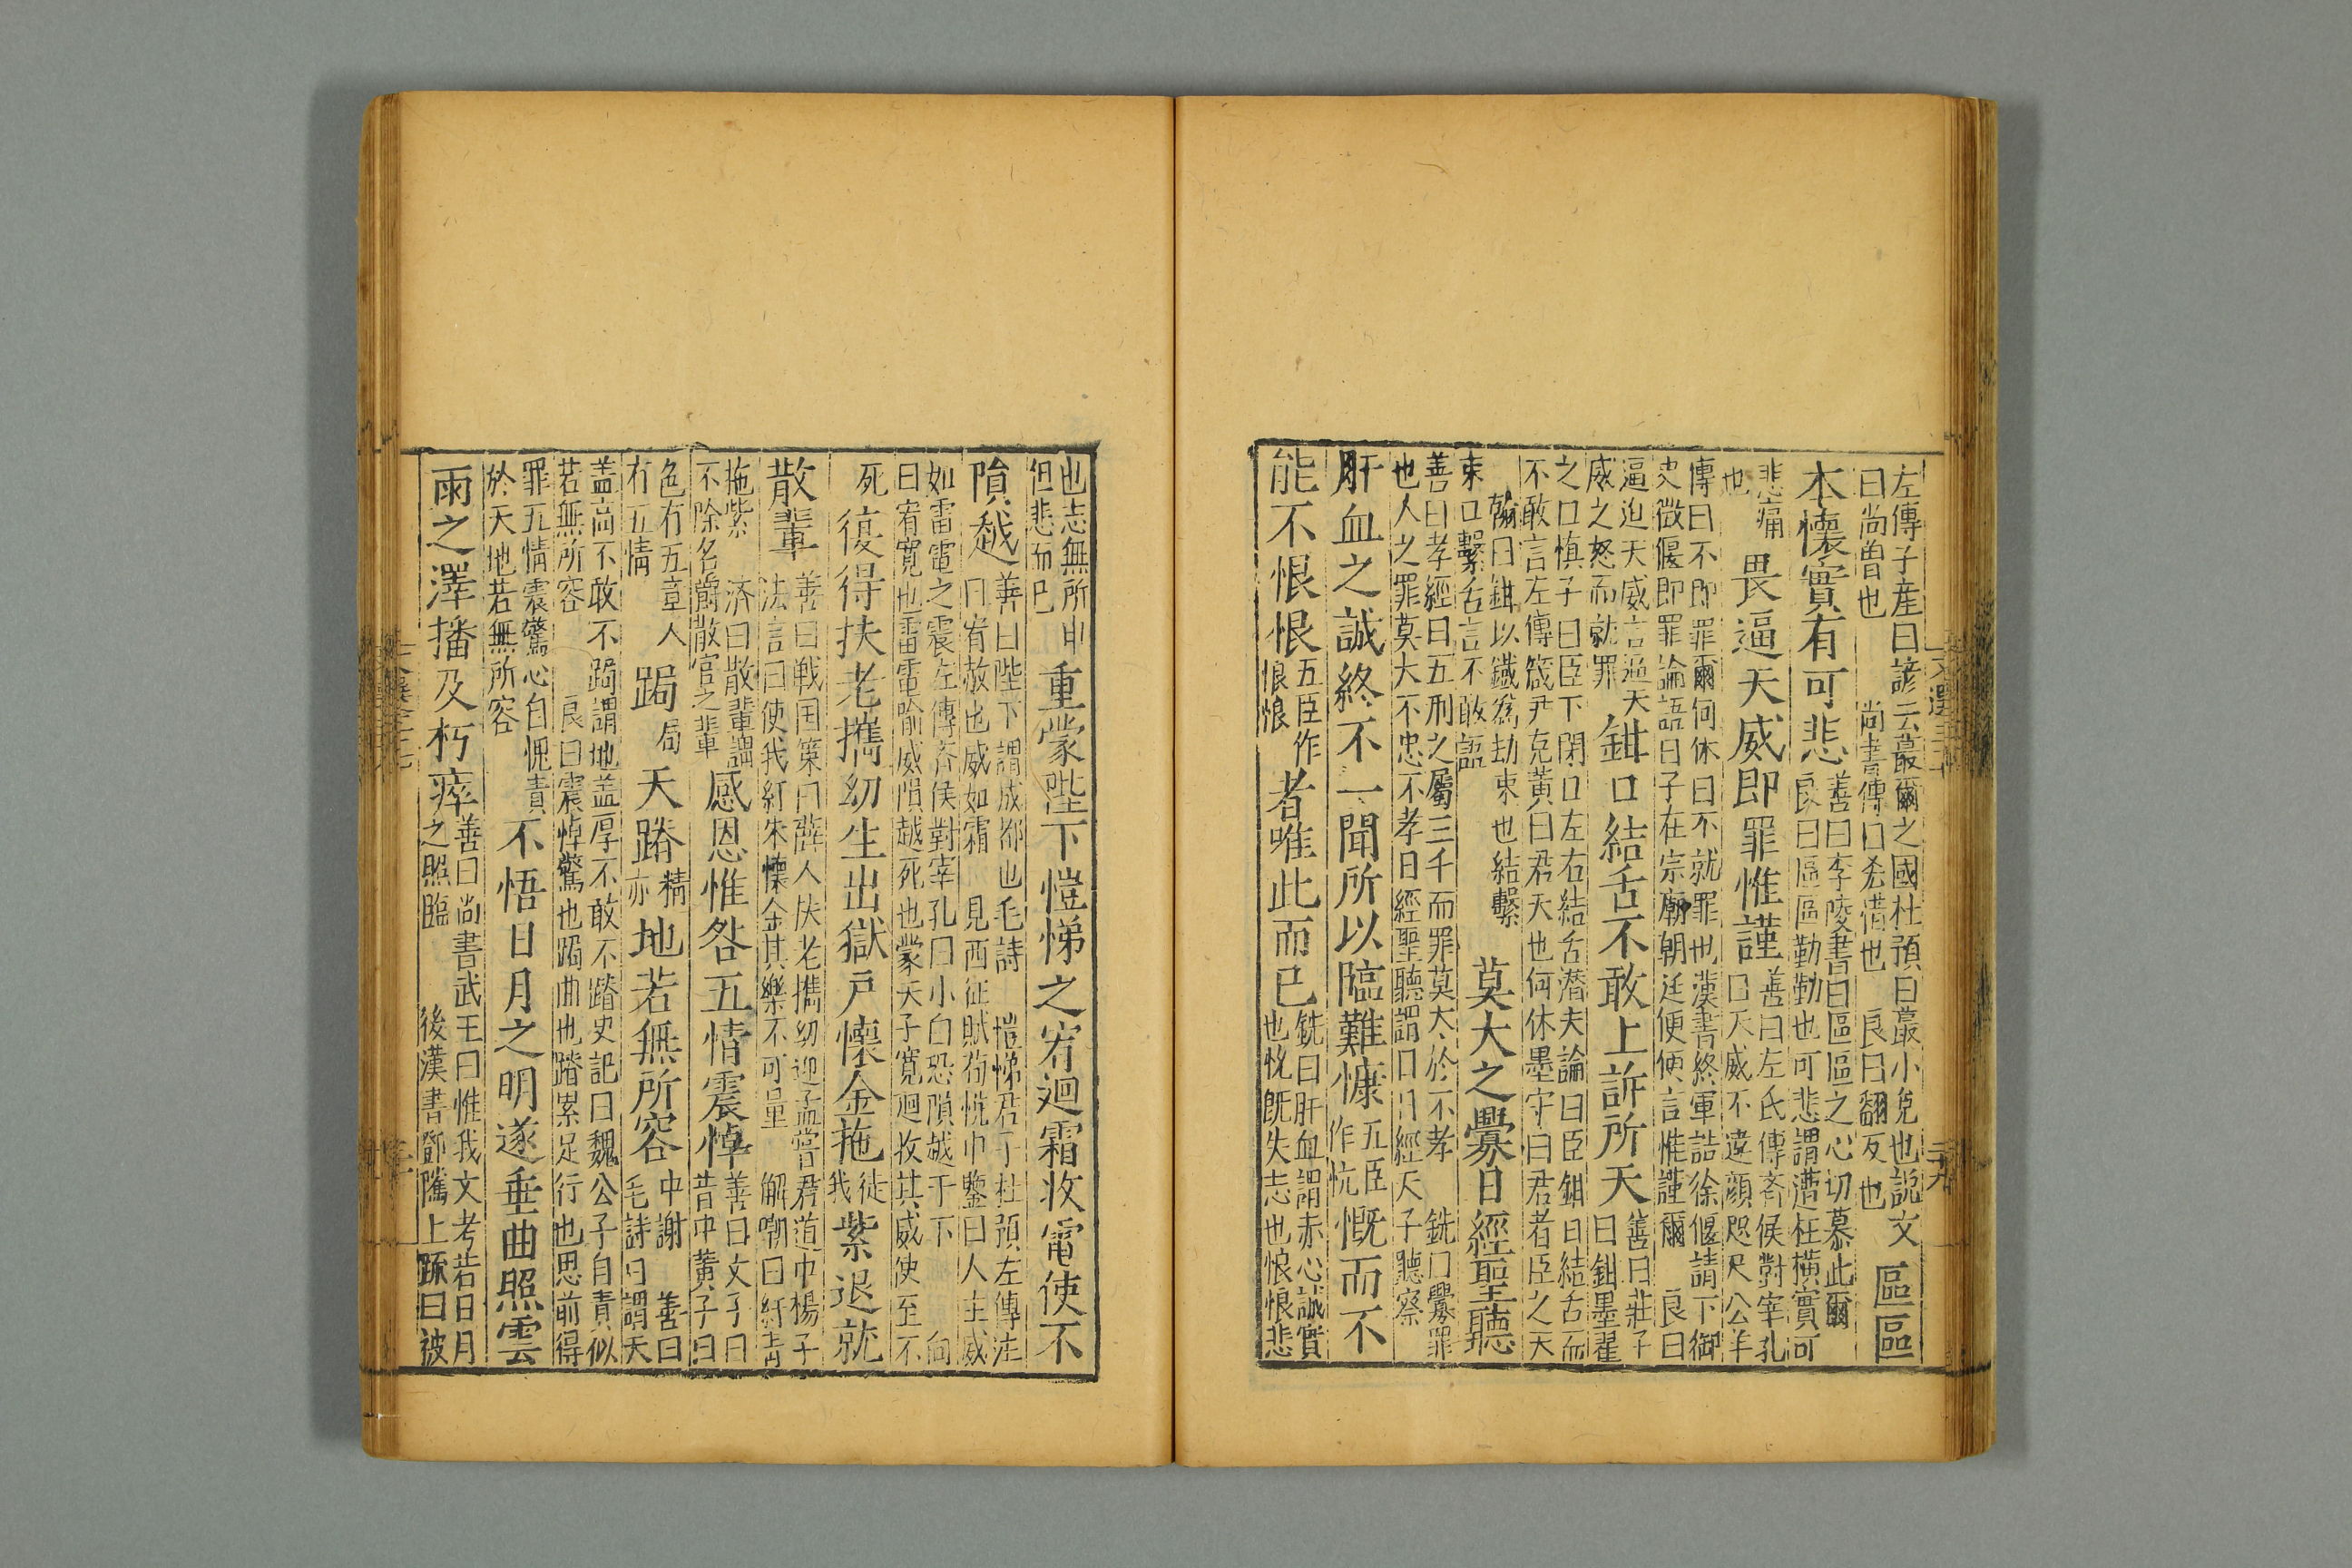 左傳子產曰諺云蕞爾之國杜預曰蕞小皃也說文
曰尚曾也 尚書傳曰忝惜也 良曰翻反也 區區
本懷實有可悲
善曰李陵書曰區區之心切慕此爾
良曰區區勤勤也可悲謂遭枉橫實可
悲痛
也
畏逼天威即罪惟謹
善曰左氏傳齊侯對宰孔
曰天威不違顏咫尺公羊
傳曰不即罪爾何休曰不就罪也漢書終軍詰徐偃請下御
史徵偃即罪論語曰子在宗廟朝廷便便言惟謹爾 良曰
逼迫天威言逼天
威之怒而就罪
鉗口結舌不敢上訴所天
善曰莊子
曰鉗墨翟
之口慎子曰臣下閉口左右結舌潛夫論曰臣鉗口結舌而
不敢言左傳箴尹克黃曰君天也何休墨守曰君者臣之天
翰曰鉗以鐵為劫束也結繫
束口繫舌言不敢語
莫大之釁日經聖聽
善曰孝經曰五刑之屬三千而罪莫大於不孝 銑曰釁罪
也人之罪莫大不忠不孝日經聖聽謂日日經天子聽察
肝血之誠終不一聞所以臨難慷
五臣
作忼
慨而不
能不恨恨
五臣作
悢悢
者唯此而已
銑曰肝血謂赤心誠實
也忱既失志也悢悢悲
也志無所申
但悲而已
重蒙陛下愷悌之宥迴霜收電使不
隕越
善曰陛下謂成都也毛詩 愷悌君子杜預左傳注
曰宥赦也威如霜 見西征賦荀悅申鑒曰人主威
如雷電之震左傳齊侯對宰孔曰小白恐隕越于下 向
曰宥寬也雷電喻威隕越死也蒙天子寬迴收其威使至不
死
復得扶老攜幼生出獄戶懷金拖
徒
我
紫退就
散輩
善曰戰國策曰薛人扶老攜幼迎孟嘗君道中楊子
法言曰使我紆朱懷金其樂不可量 解嘲曰紆青
拖紫 濟曰散輩謂
不除名爵散官之輩
感恩惟咎五情震悼
善曰文子曰
昔中黃子曰
色有五章人
有五情
跼
局
天蹐
精
亦
地若無所容
中謝 善曰
毛詩曰謂天
盖高不敢不跼謂地盖厚不敢不蹐史記曰魏公子自責似
若無所容 良曰震悼驚也跼曲也蹐累足行也思前得
罪五情震驚心自愧責
於天地若無所容
不悟日月之明遂垂曲照雲
雨之澤播及朽瘁
善曰尚書武王曰惟我文考若日月
之照臨 後漢書鄧騭上疏曰被